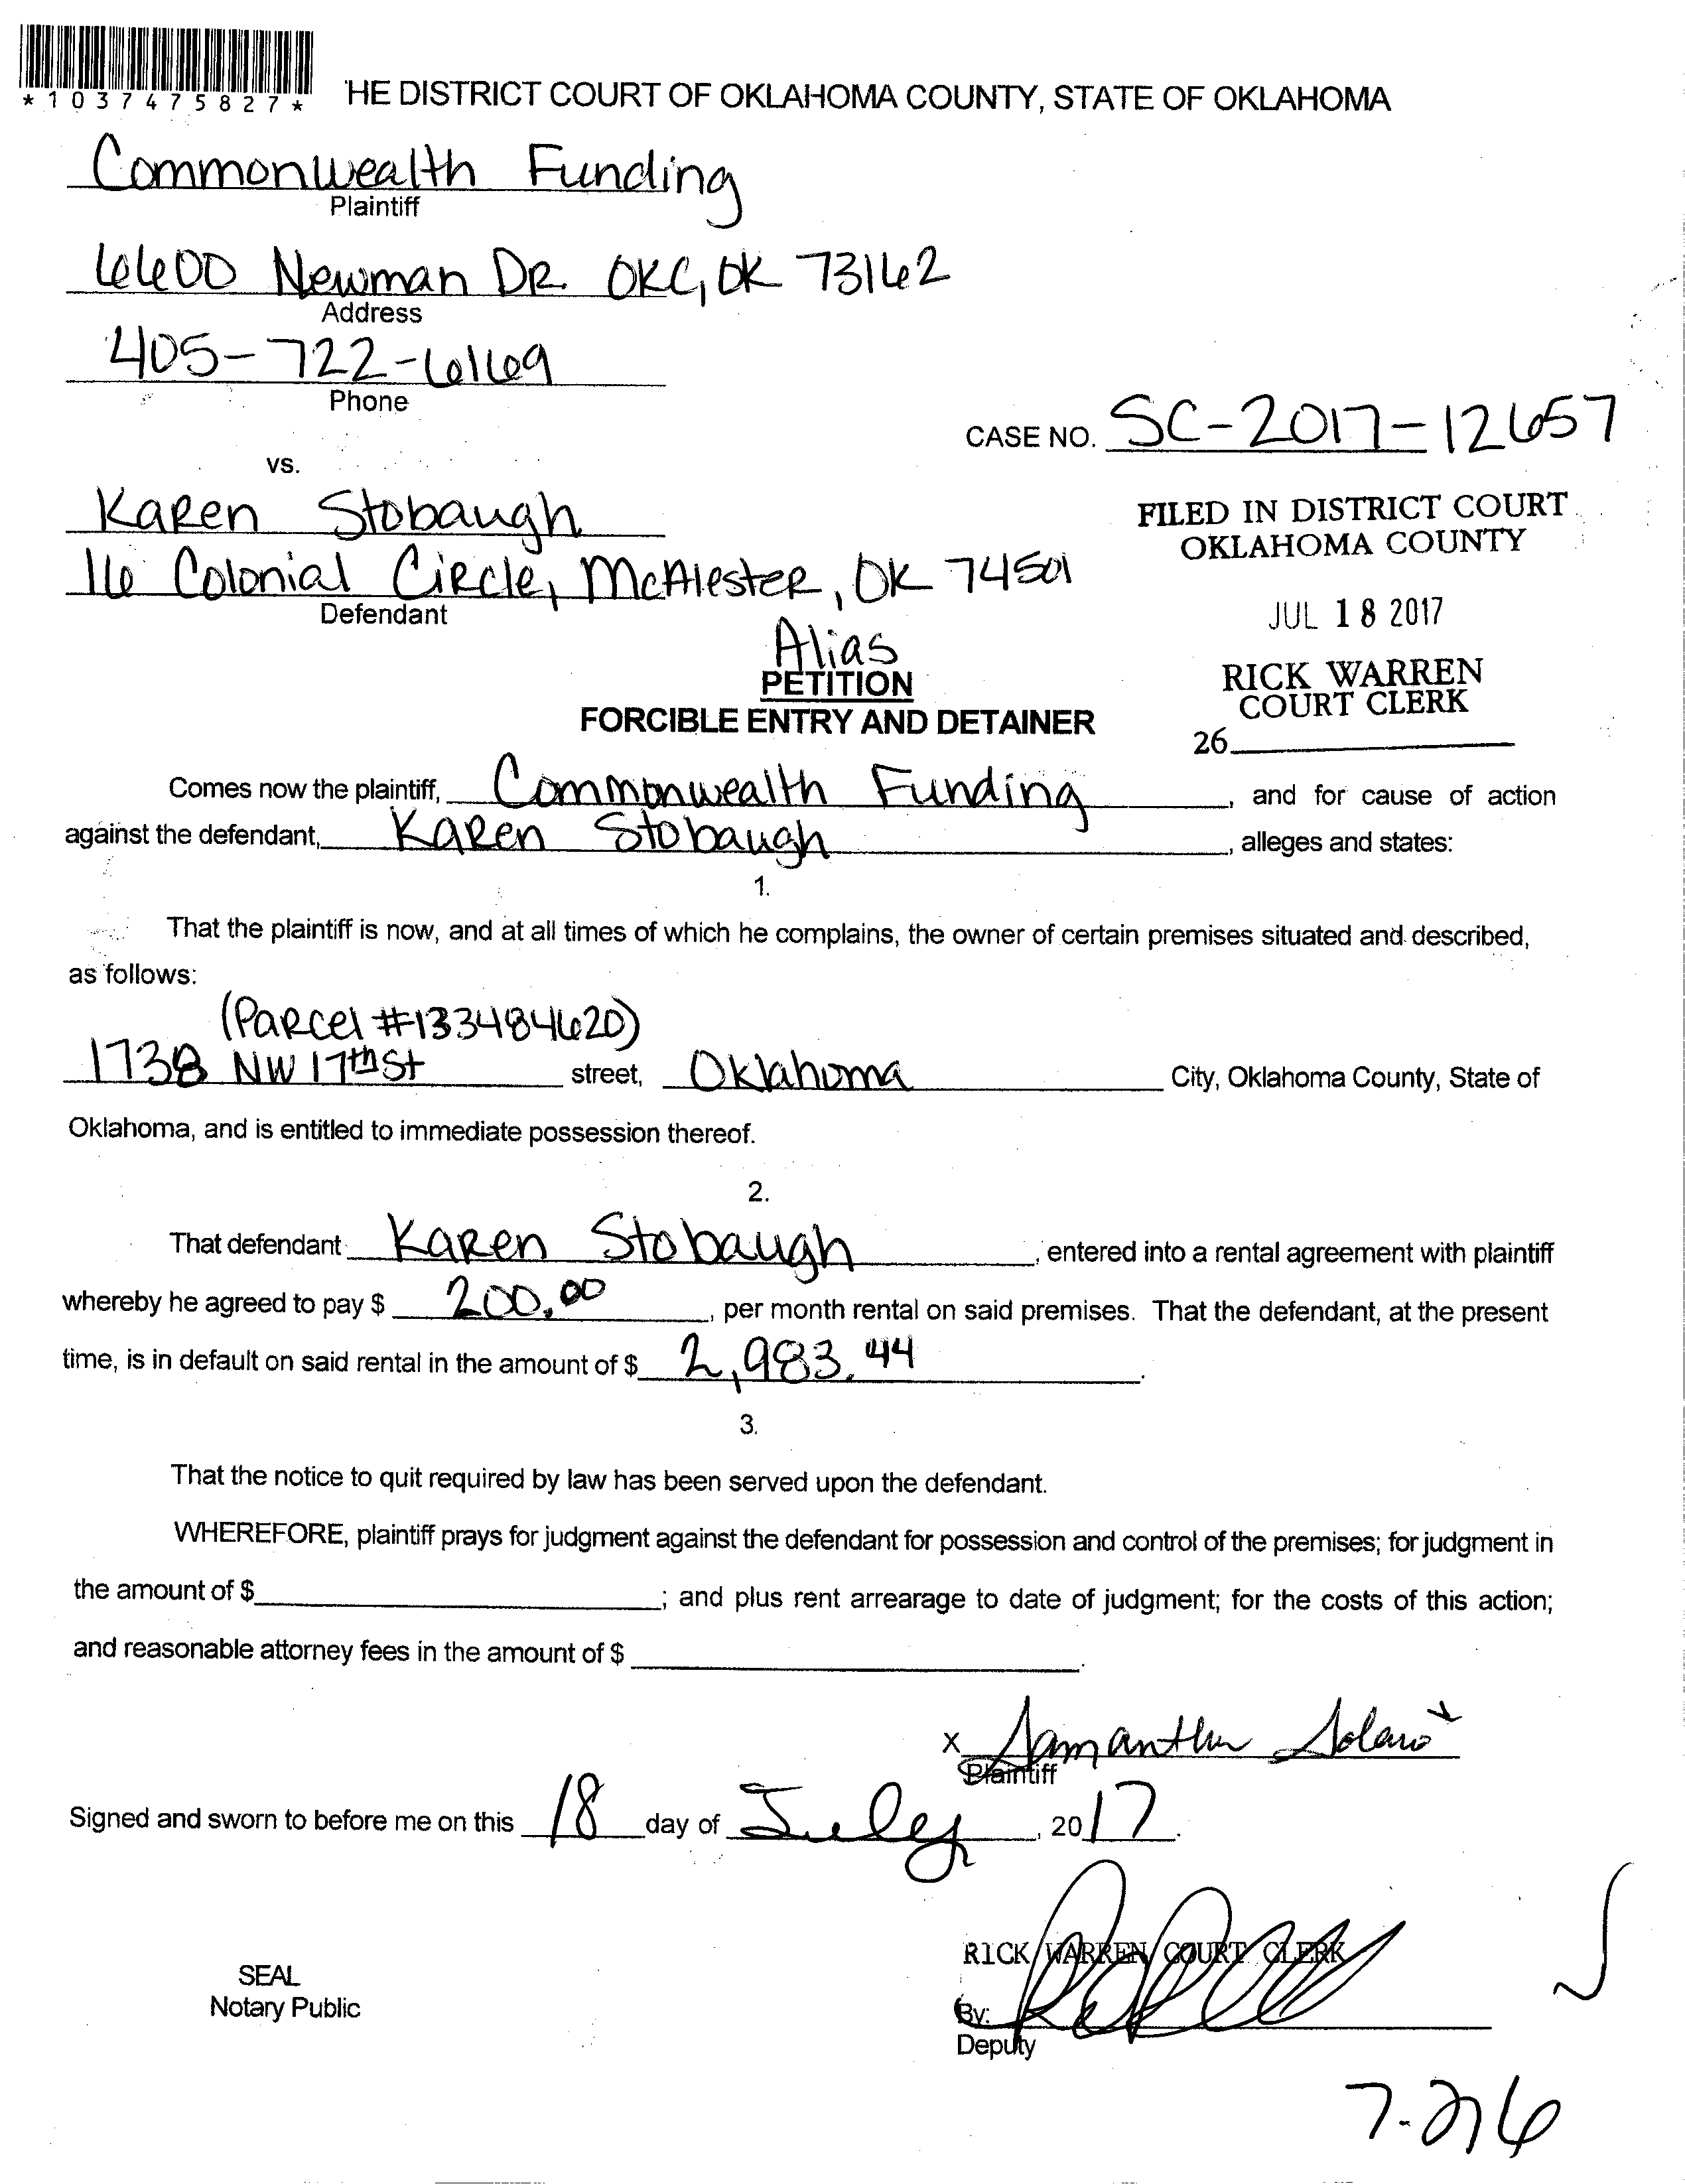 *1037475827*
HE DISTRICT COURT OF OKLAHOMA COUNTY, STATE OF OKLAHOMA
Commonwealth Funding
Plaintiff
6600 Newman DR. OKC, OK 73162
Address
405-722-6169
Phone
CASE NO. SC-2017-12657
vs.
Karen Stobaugh
16 Colonial Circle, McAlester, OK 74501
Defendant
FILED IN DISTRICT COURT
OKLAHOMA COUNTY
JUL 18 2017
RICK WARREN
COURT CLERK
26
Alias
PETITION
FORCIBLE ENTRY AND DETAINER
Comes now the plaintiff, Commonwealth Funding, and for cause of action
against the defendant, Karen Stobaugh, alleges and states:
1.
That the plaintiff is now, and at all times of which he complains, the owner of certain premises situated and described,
as follows:
(Parcel #133484620)
1738 NW 17th St street, Oklahoma City, Oklahoma County, State of
Oklahoma, and is entitled to immediate possession thereof.
2.
That defendant Karen Stobaugh, entered into a rental agreement with plaintiff
whereby he agreed to pay $ 200.00, per month rental on said premises. That the defendant, at the present
time, is in default on said rental in the amount of $ 2,983.44.
3.
That the notice to quit required by law has been served upon the defendant.
WHEREFORE, plaintiff prays for judgment against the defendant for possession and control of the premises; for judgment in
the amount of $ ; and plus rent arrearage to date of judgment; for the costs of this action;
and reasonable attorney fees in the amount of $ .
x Samantha Solano
Plaintiff
Signed and sworn to before me on this 18 day of July, 2017.
RICK WARREN COURT CLERK
SEAL
Notary Public
By:
Deputy